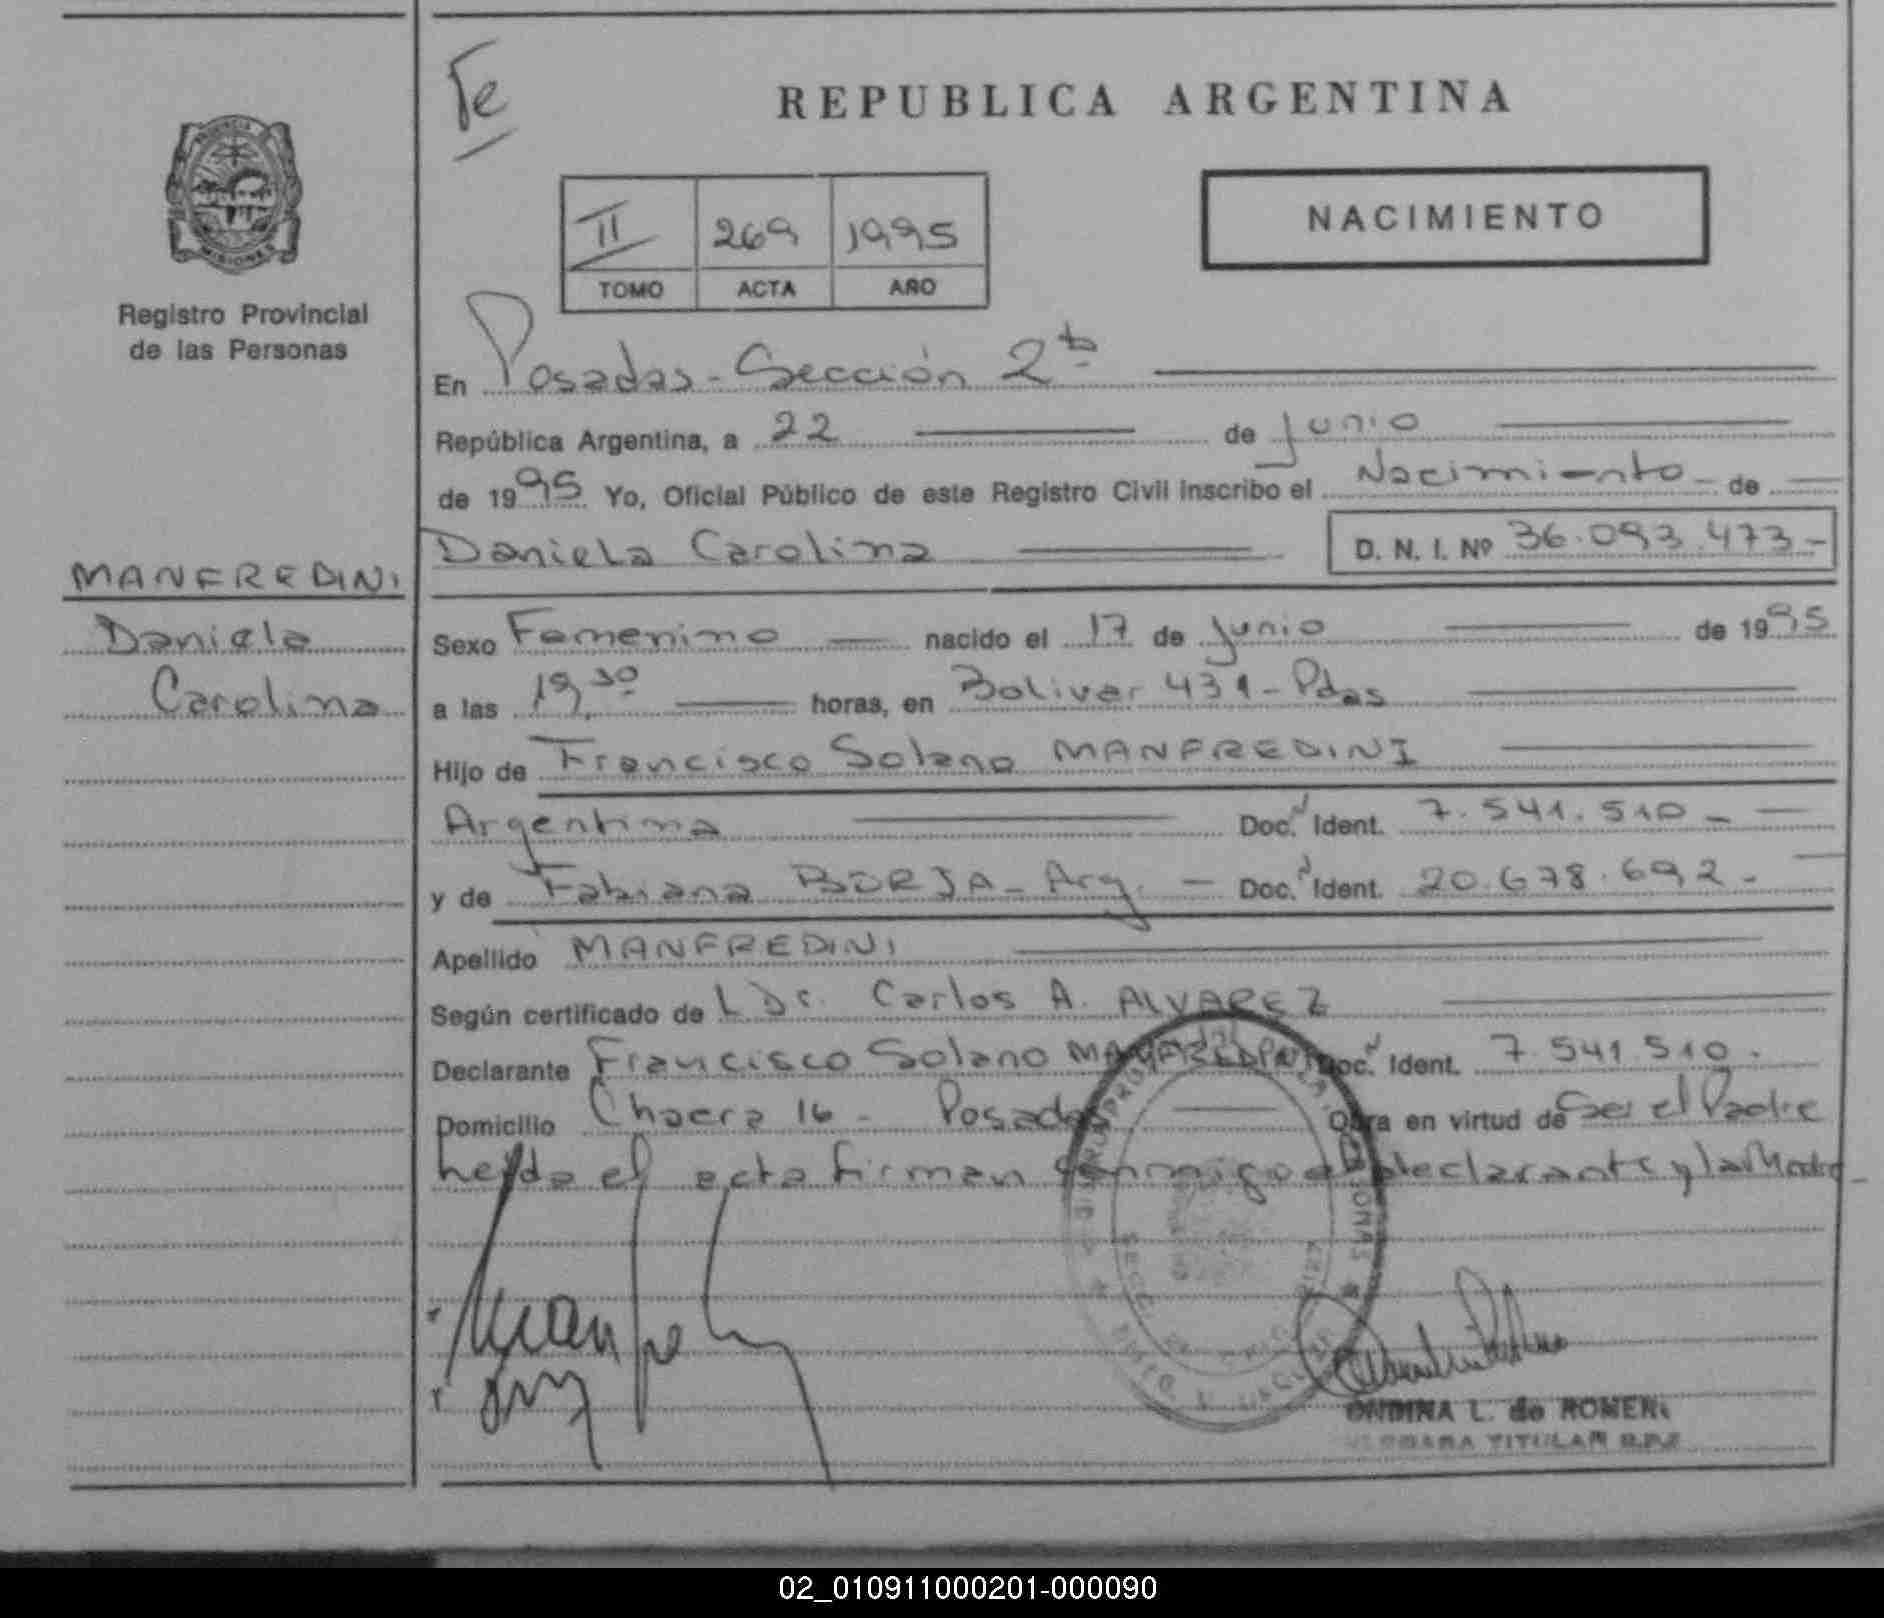 Fe
REPUBLICA ARGENTINA
PROVINCIA
MISIONES
Registro Provincial
de las Personas
NACIMIENTO
II 269 1995
TOMO ACTA AÑO
En Posadas - Sección 2da
República Argentina, a 22 de Junio
de 1995 Yo, Oficial Público de este Registro Civil inscribo el Nacimiento - de
Daniela Carolina D. N. I. Nº 36.093.473 -
MANFREDINI
Daniela
Carolina
Sexo Femenino nacido el 17 de Junio de 1995
a las 19,30 horas, en Bolivar 431 - Pdas
Hijo de Francisco Solano MANFREDINI
Argentina Doc. Ident. 7.541.510 -
y de Fabiana BORJA - Arg. - Doc. Ident. 20.678.692 -
Apellido MANFREDINI
Según certificado de L Dr. Carlos A. ALVAREZ
Declarante Francisco Solano MANFREDINI Doc. Ident. 7.541.510.
Domicilio Chacra 16 - Posadas Obra en virtud de Ser el Padre
heyda el acta firman conmigo el declarante y la Madre -
ONDINA L. de ROMERO
TITULAR R.P.P
02_010911000201-000090